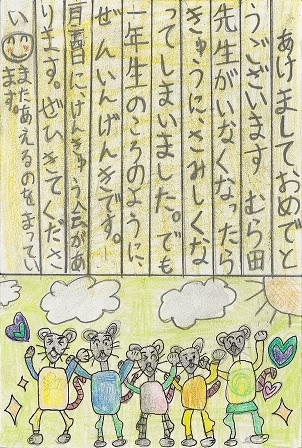 あけましておめでと
うございます むら田
先生がいなくなったら
きゅうに、さみしくな
ってしまいました。でも
一年生のころのように、
ぜんいんげんきです。
月 日にけんきゅう会があ
ります。ぜひきてくださ
い またあえるのをまってい
ます。